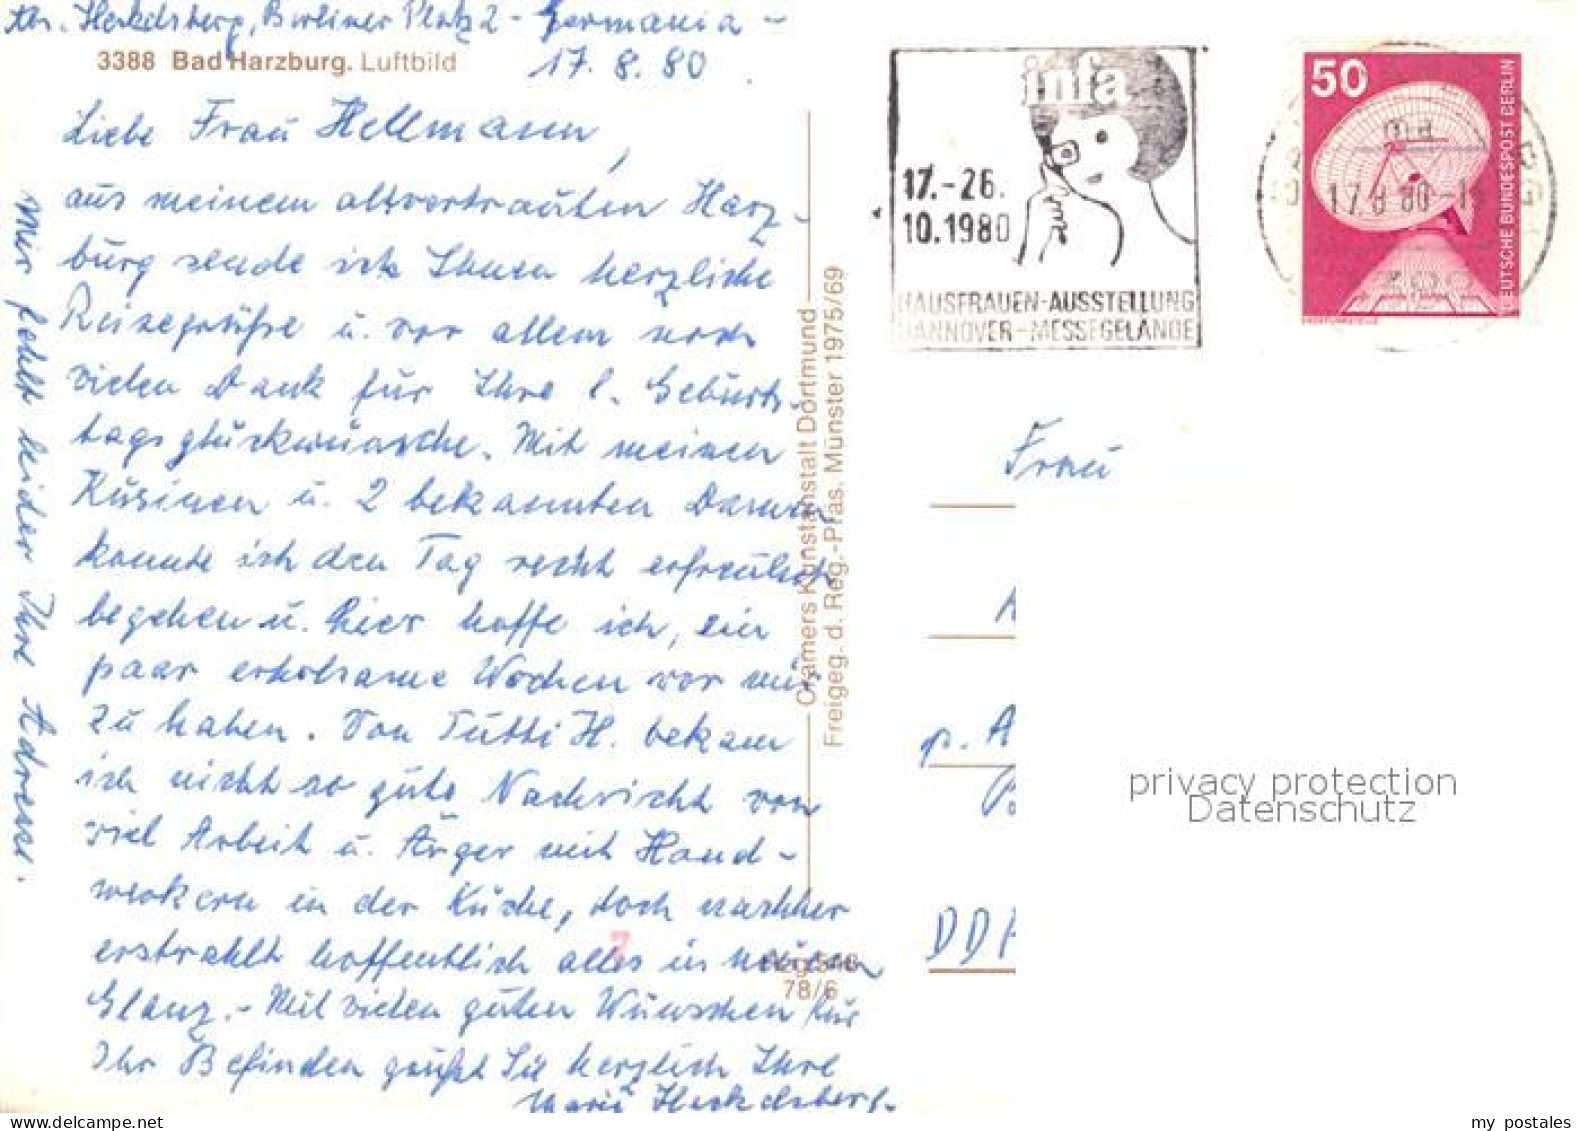 Berliner Platz 2 - Germania -
3388 Bad Harzburg. Luftbild
17. 8. 80
Liebe Frau Hellmann,
aus meinem altvertrauten Harz-
burg sende ich Ihnen herzliche
Reisegrüße u. vor allem noch
vielen Dank für Ihre l. Geburts-
tagsglückwünsche. Mit meinen
Kusinen u. 2 bekannten Damen
konnte ich den Tag recht erfreulich
begehen u. hier hoffe ich, ein
paar erholsame Wochen vor mir
zu haben. Von Tutti H. bekam
ich nicht so gute Nachricht von
viel Arbeit u. Ärger mit Hand-
werkern in der Küche, doch nachher
erstrahlt hoffentlich alles in neuem
Glanz. - Mit vielen guten Wünschen für
Ihr Befinden grüßt Sie herzlich Ihre
Mir fehlt leider Ihre Adresse.
Cramers Kunstanstalt Dortmund
Freigeg. d. Reg.-Präs. Münster 1975/69
78/6
infa
17.-26.
10.1980
HAUSFRAUEN-AUSSTELLUNG
HANNOVER-MESSEGELÄNDE
50
DEUTSCHE BUNDESPOST BERLIN
17.8.80-1
Frau
A
p. A
DDR
privacy protection
Datenschutz
www.delcampe.net
my postales